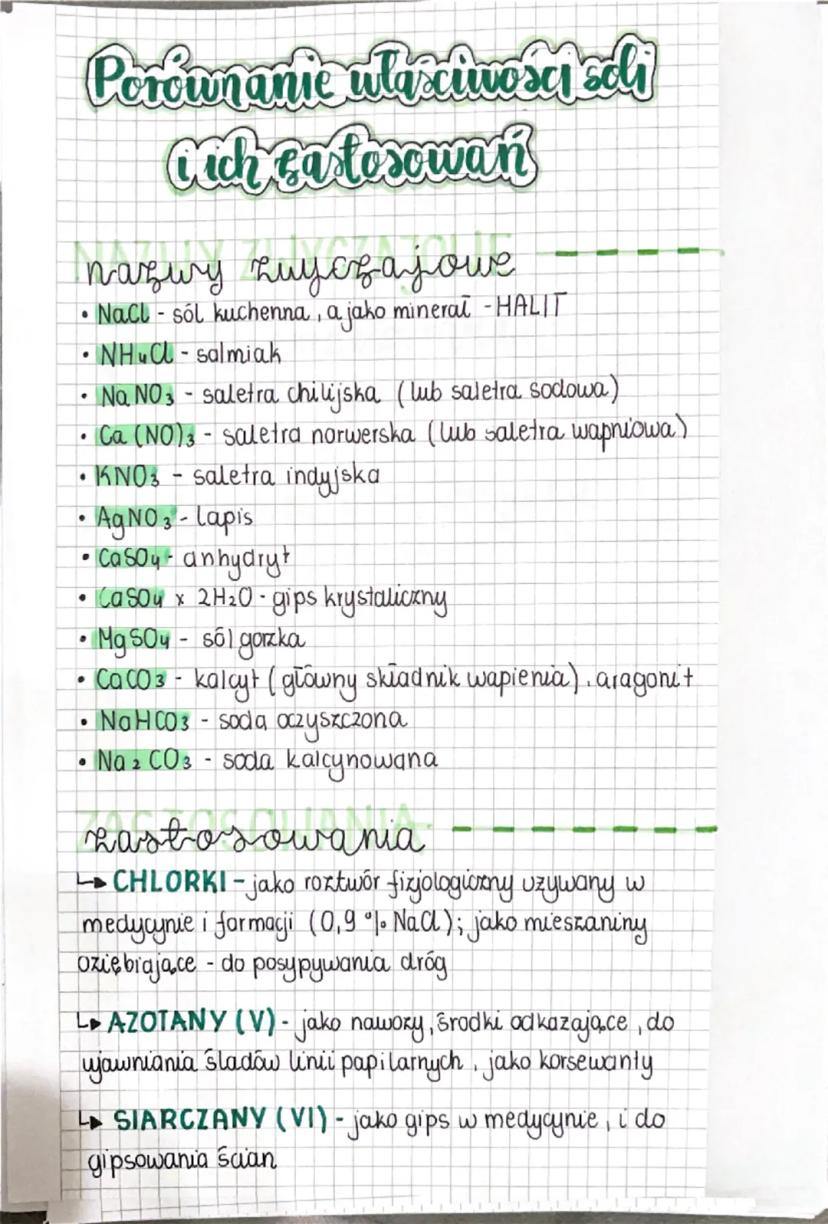 Porównanie właściwości soli
i ich zastosowań
NAZWY ZWYCZAJOWE
nazwy zwyczajowe
• NaCl - sól kuchenna, a jako minerał - HALIT
• NH4Cl - salmiak
• NaNO3 - saletra chilijska (lub saletra sodowa)
• Ca(NO)3 - saletra norwerska (lub saletra wapniowa)
• KNO3 - saletra indyjska
• AgNO3 - lapis
• CaSO4 - anhydryt
• CaSO4 x 2H2O - gips krystaliczny
• MgSO4 - sól gorzka
• CaCO3 - kalcyt (główny składnik wapienia), aragonit
• NaHCO3 - soda oczyszczona
• Na2CO3 - soda kalcynowana
ZASTOSOWANIA
zastosowania
↳ CHLORKI - jako roztwór fizjologiczny używany w
medycynie i farmacji (0,9 % NaCl); jako mieszaniny
oziębiające - do posypywania dróg
↳ AZOTANY (V) - jako nawozy, środki odkażające, do
ujawniania śladów linii papilarnych, jako korsewanty
↳ SIARCZANY (VI) - jako gips w medycynie, i do
gipsowania ścian